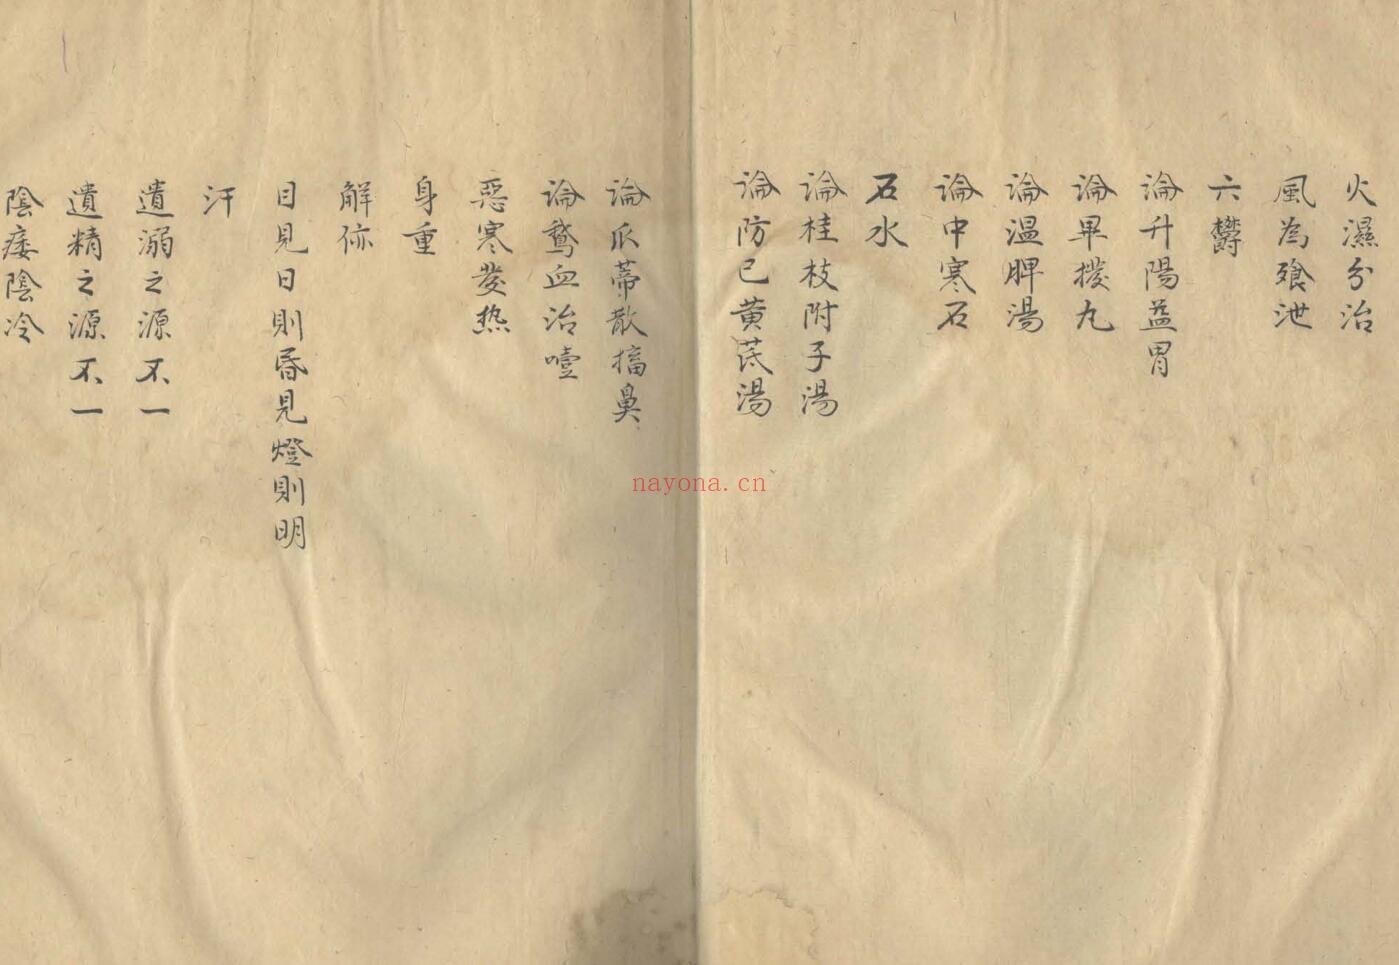 火濕分治
風為飱泄
六欝
論升陽益胃
論畢撥丸
論温脾湯
論中寒石
石水
論桂枝附子湯
論防已黄芪湯
論瓜蒂散搐鼻
論鵞血治噎
惡寒發热
身重
解㑊
目見日則昏見燈則明
汗
遺溺之源不一
遺精之源不一
陰痿陰冷
nayona.cn